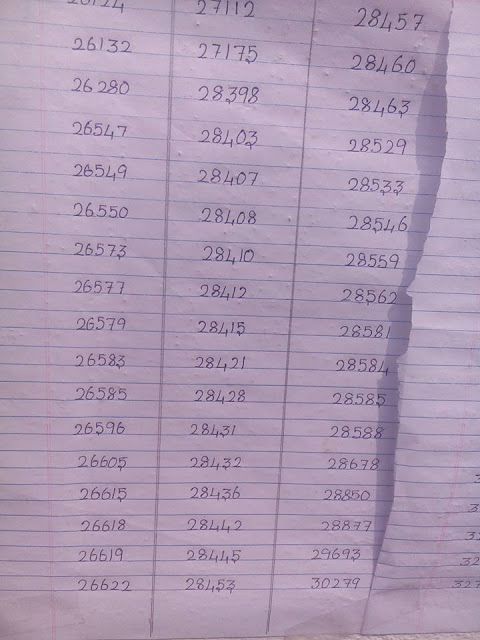 26124 27112 28457
26132 27175 28460
26280 28398 28463
26547 28403 28529
26549 28407 28533
26550 28408 28546
26573 28410 28559
26577 28412 28562
26579 28415 28581
26583 28421 28584
26585 28428 28585
26596 28431 28588
26605 28432 28678
26615 28436 28850
26618 28442 28877
26619 28445 29693
26622 28453 30279